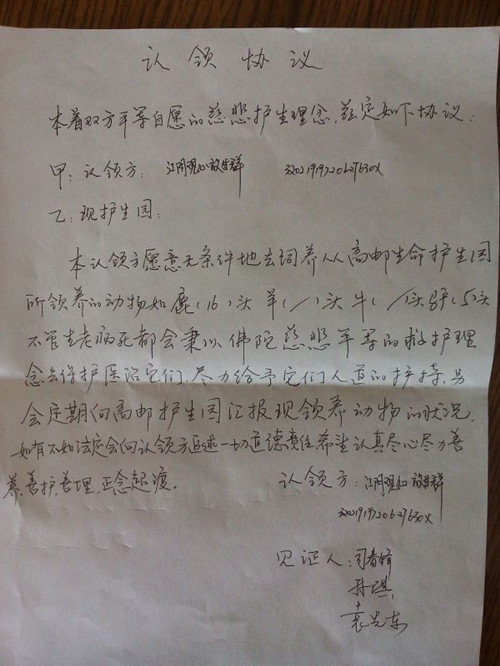 认领协议
本着双方平等自愿的慈悲护生理念,兹定如下协议:
甲:认领方: 江阴观心放生群
乙:现护生园:
本认领方愿意无条件地去饲养从高邮生命护生园
所领养的动物如鹿(16)头羊(/)头牛(/)头驴(5)头
不管生老病死都会秉以佛陀慈悲平等的救护理
念去保护医治它们.尽力给予它们人道的护持.另
会定期向高邮护生园汇报现领养动物的状况.
如有不如法定会向认领方追述一切道德责任.希望认真尽心尽力善
养.善护善理.正念超渡.
认领方:江阴观心放生群
见证人: